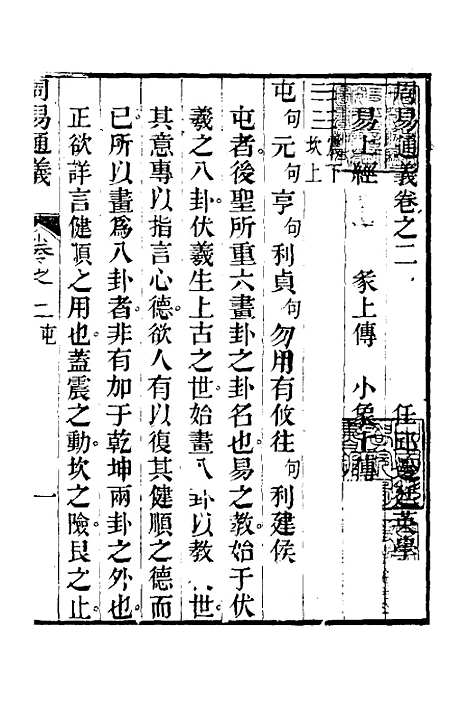 周易通義卷之二 任邱邊廷英學
易上經一 彖上傳 小象上傳
震下坎上
屯句元句亨句利貞句勿用有攸往句利建侯
屯者後聖所重六畫卦之卦名也易之教始于伏
羲之八卦伏羲生上古之世始畫八卦以教 世
其意專以指言心德欲人有以復其健順之德而
已所以畫爲八卦者非有加于乾坤兩卦之外也
正欲詳言健順之用也蓋震之動坎之險艮之止
周易通義 卷之二 屯 一